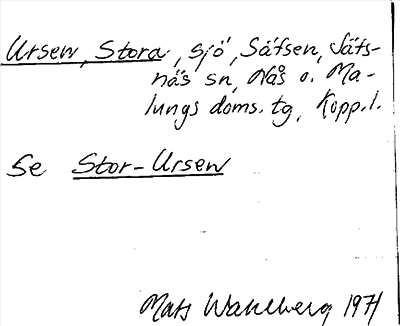 Ursen, Stora, sjö, Säfsen, Säfs-
näs sn, Nås o. Ma-
lungs doms. tg, Kopp. l.
Se Stor-Ursen
Mats Wahlberg 1971